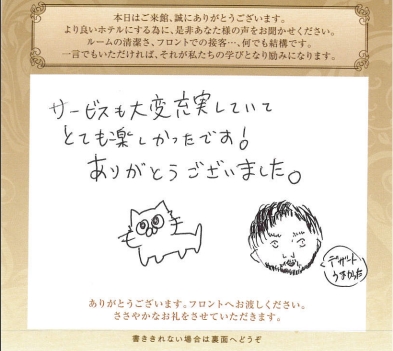 本日はご来館、誠にありがとうございます。
より良いホテルにする為に、是非あなた様の声をお聞かせください。
ルームの清潔さ、フロントでの接客…、何でも結構です。
一言でもいただければ、それが私たちの学びとなり励みになります。
サービスも大変充実していて
とても楽しかったです!
ありがとうございました。
デザート
うまかった
ありがとうございます。フロントへお渡しください。
ささやかなお礼をさせていただきます。
書ききれない場合は裏面へどうぞ